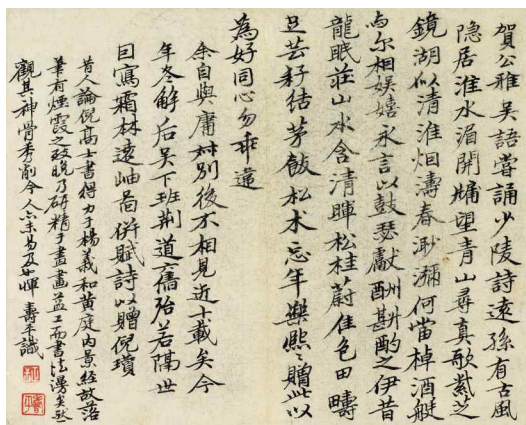 賀公雅吳語嘗誦少陵詩遠孫有古風
隐居淮水湄開牖望青山尋真歌紫芝
鏡湖似清淮烟濤春渺瀰何當棹酒艇
与尔相娛嬉永言以鼓瑟獻酬斟酌之伊昔
龍眠莊山水含清暉松桂蔚佳色田疇
足芸耔结茅飯松术忘年樂熙々贈此以
為好同心勿乖違
余自與庸材別後不相見近十載矣今
年冬解后吳下班荆道舊殆若隔世
囙寫霜林遠岫啚併賦詩以贈倪瓚
昔人論倪高士書得力于楊義和黄庭内景經故落
筆有煙霞之致晚乃研精于畫畫益工而書法漫矣然
觀其神骨秀削令人亦未易及也惲壽平識